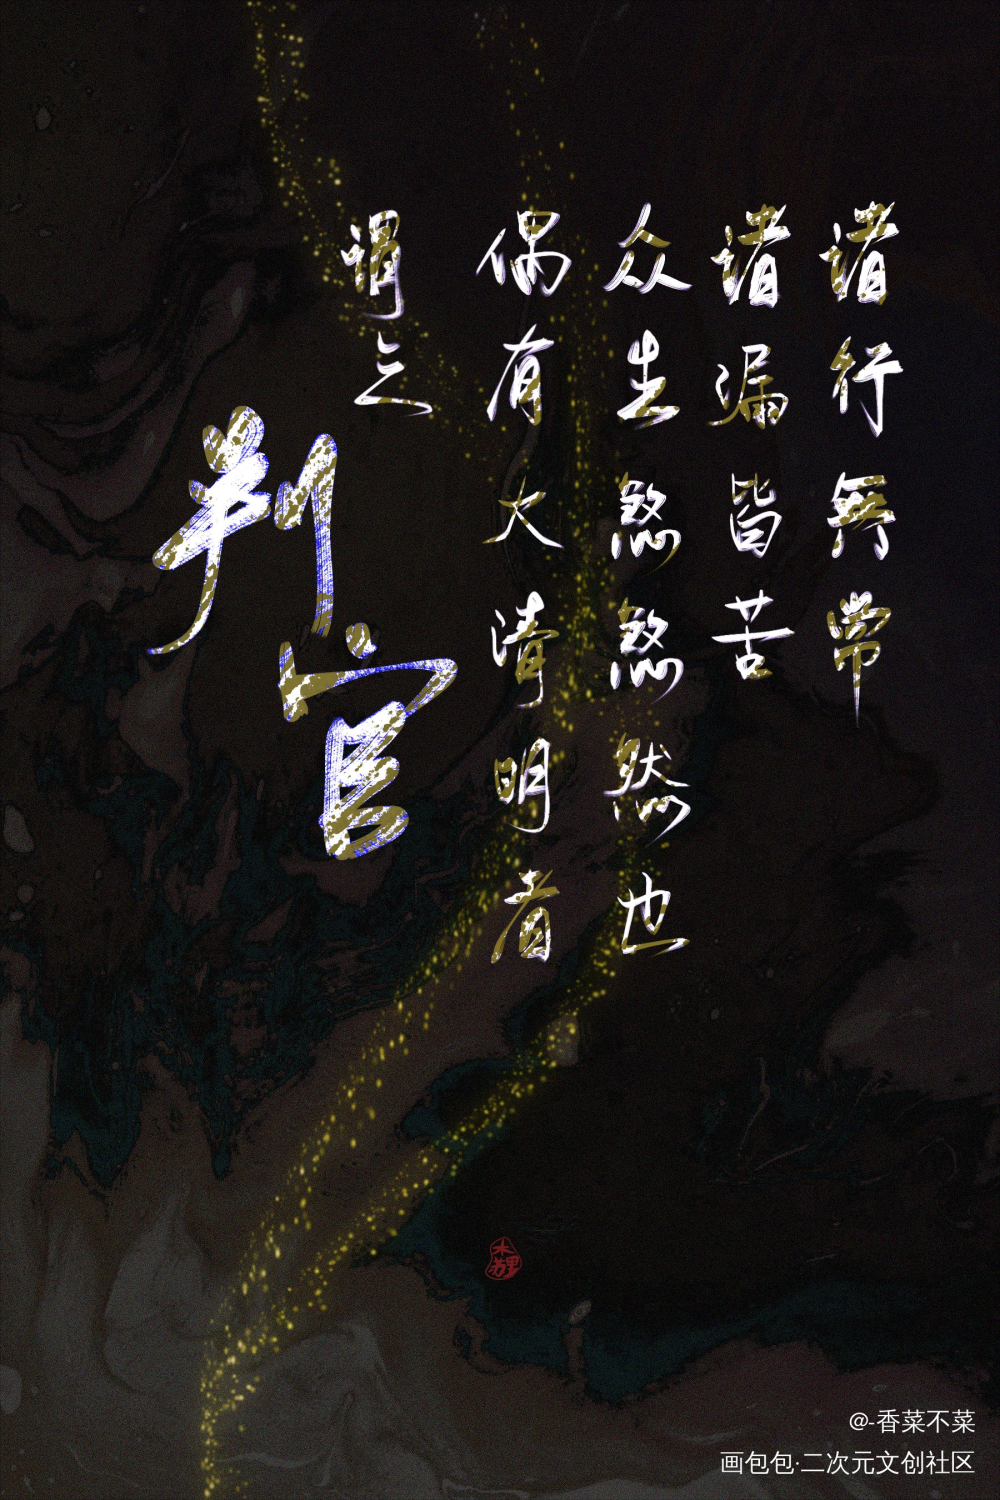 诸行無常
诸漏皆苦
众生煞煞然也
偶有大清明者
谓之
判官
木苏里
@-香菜不菜
画包包·二次元文创社区